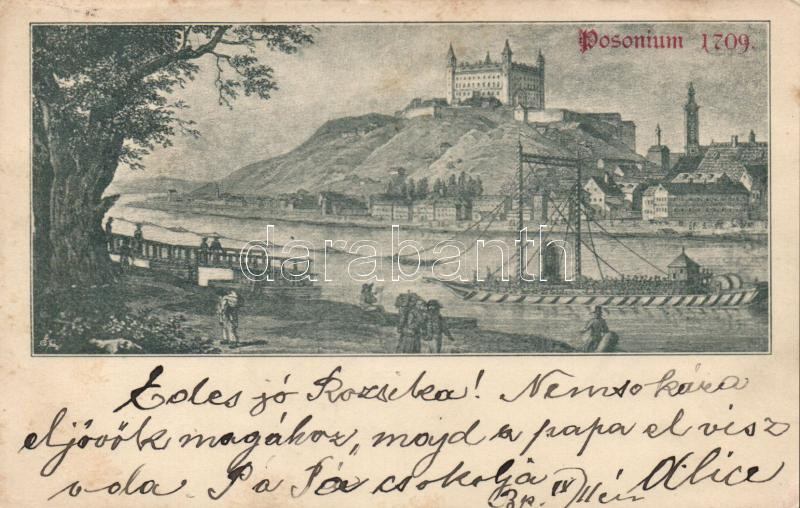 Posonium 1709.
darabanth
Edes jó Rozsika! Nemsokára
eljövök magához, majd a papa el visz
oda Pá Pá csokolja Alice
Bp. IV 11én